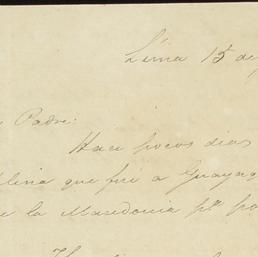 Lima 15 de
Padre:
Hace pocos dias
que fué a Guayaq
la Macedonia pr. po